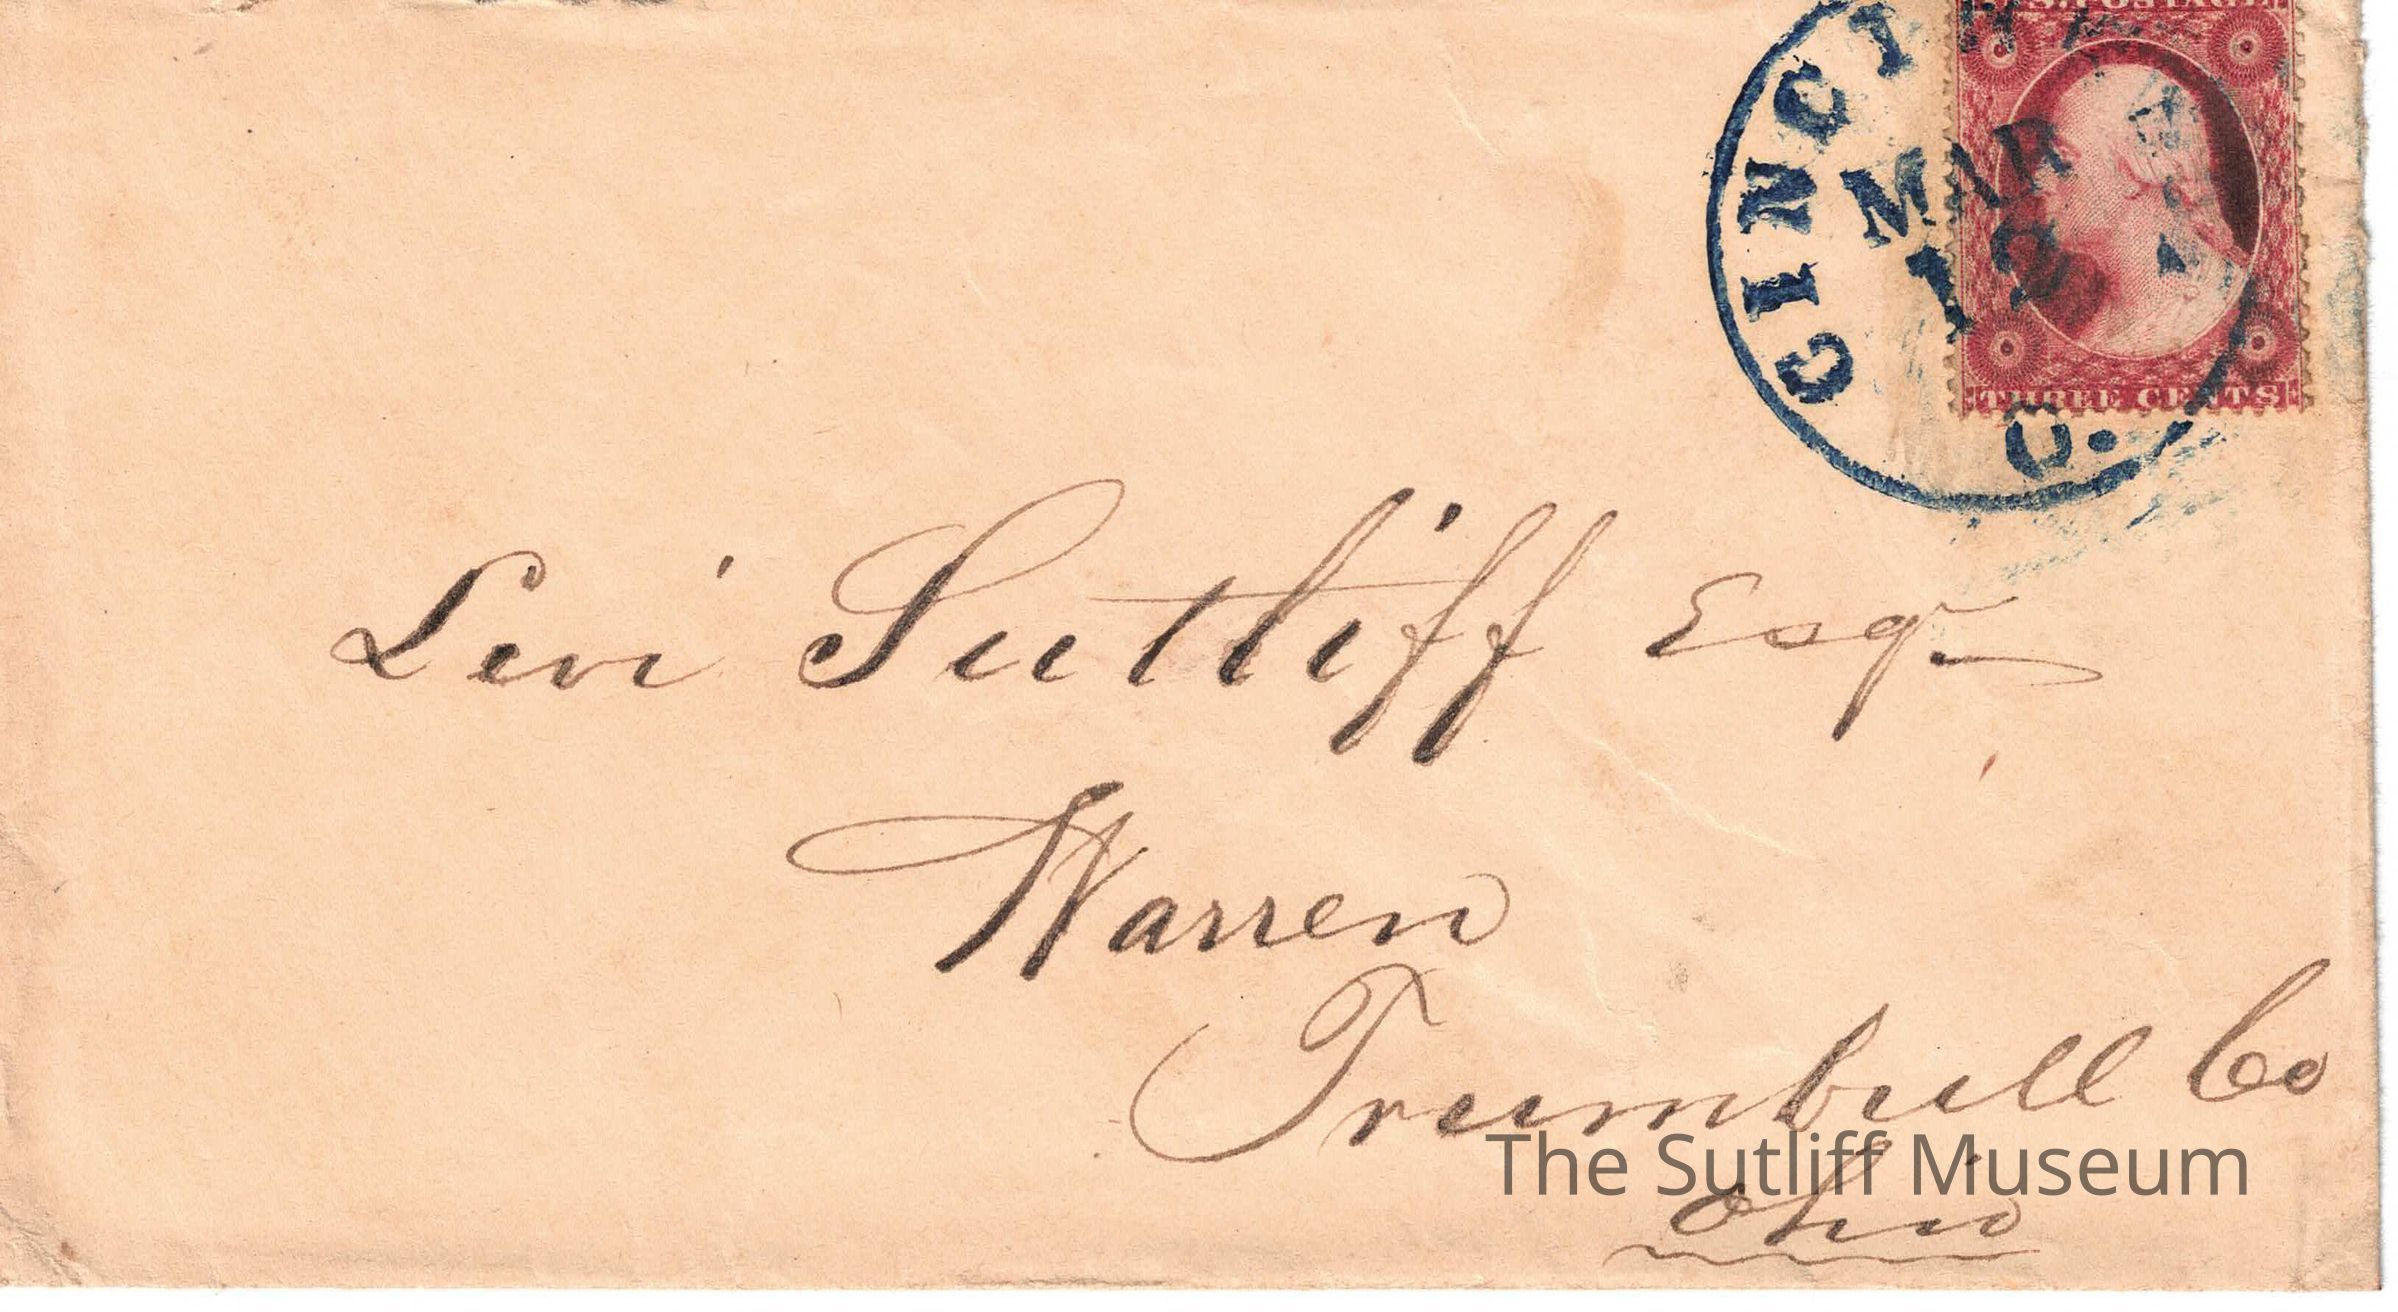 U.S. POSTAGE
CINCI
MAR
12
THREE CENTS
O.
Levi Sutliff Esqr
Warren
Trumbull Co
The Sutliff Museum
Ohio